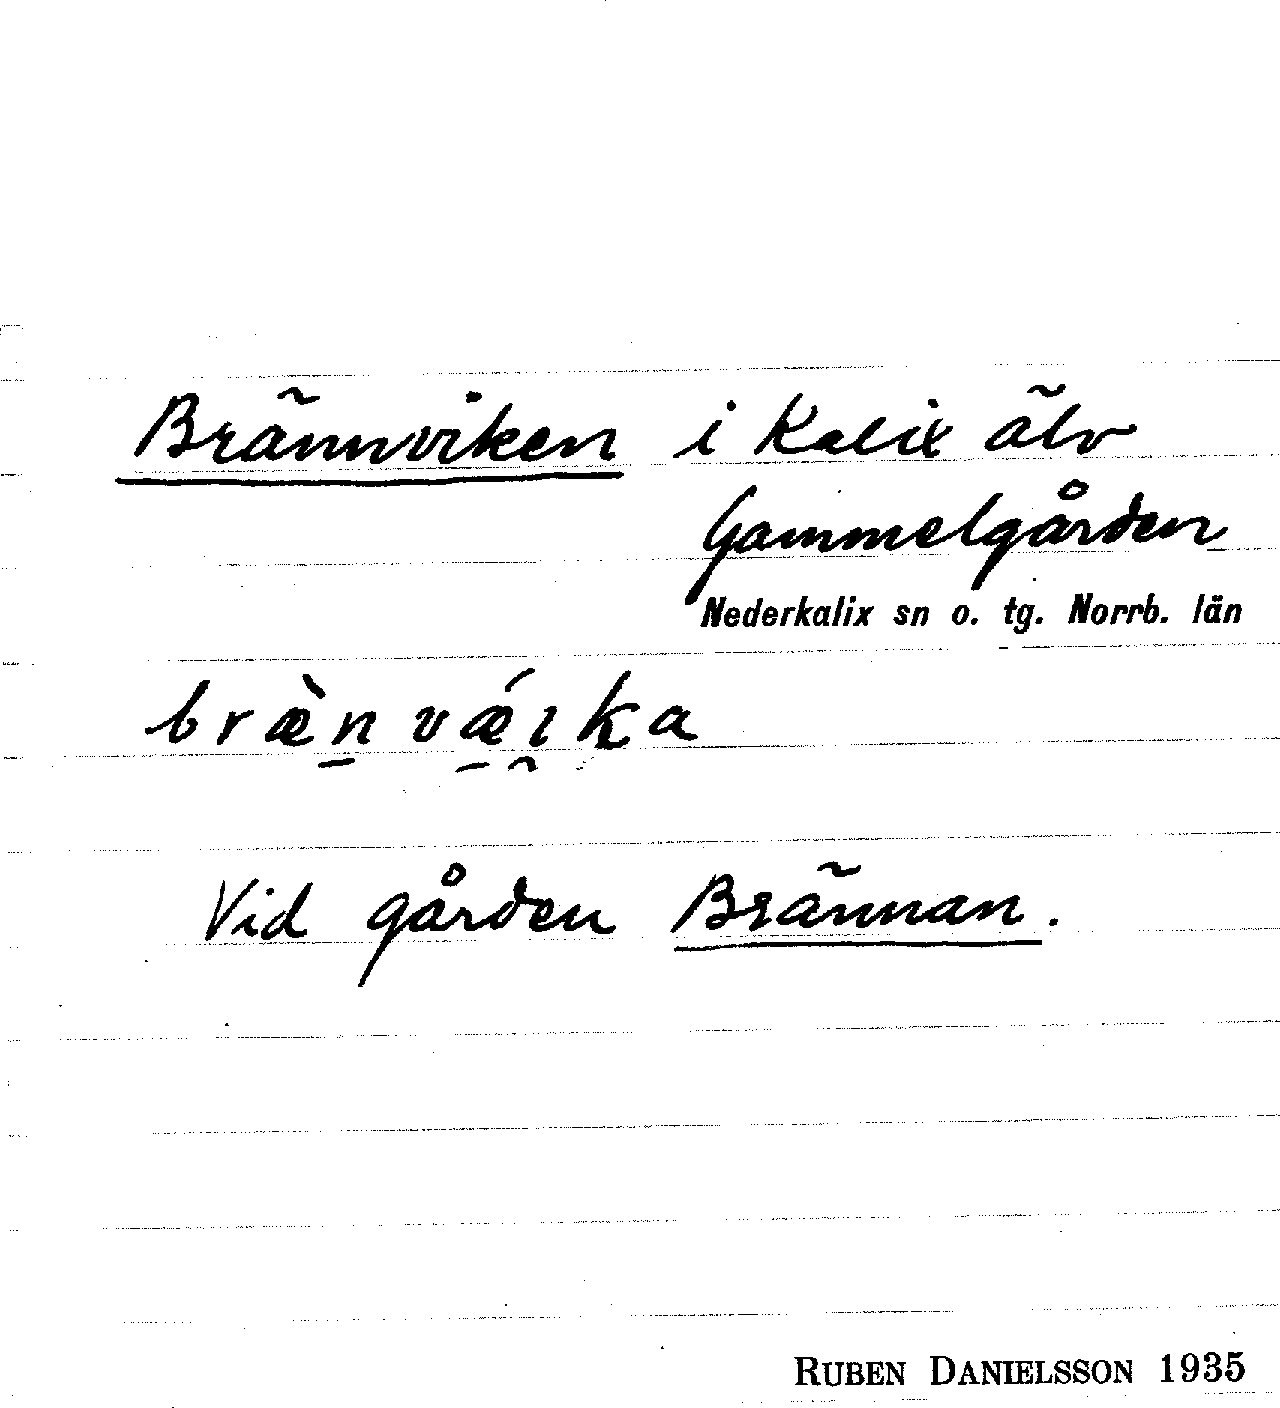 Brännviken i Kalix älv
Gammelgården
Nederkalix sn o. tg. Norrb. län
bræ̀n̠ vǽ̠ı̯ka
Vid gården Brännan.
RUBEN DANIELSSON 1935